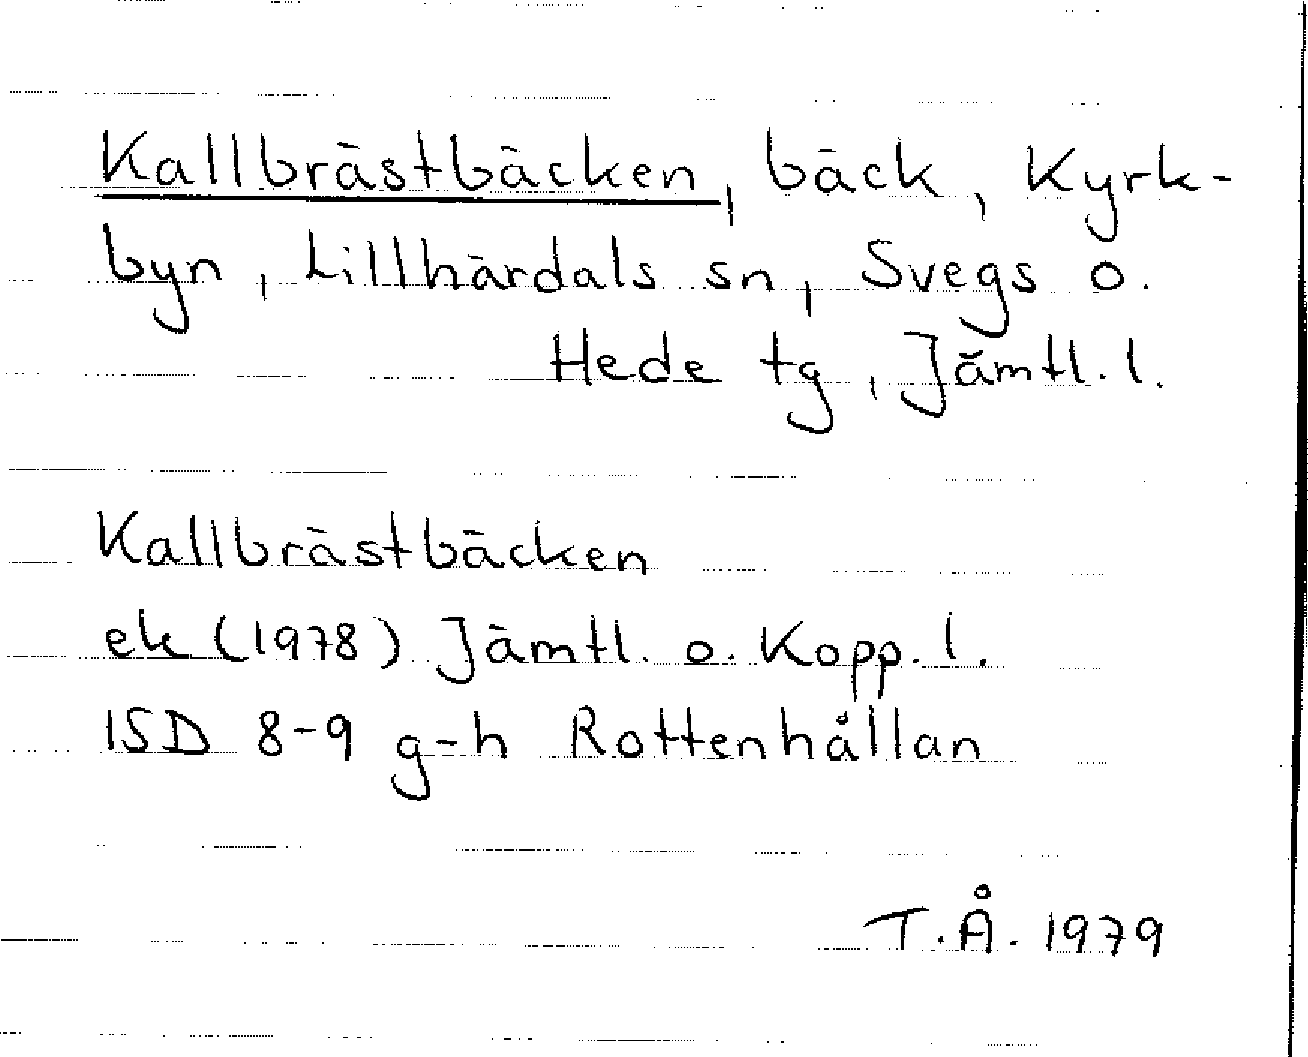 Kallbrästbäcken, bäck, Kyrk-
byn, Lillhärdals sn, Svegs o.
Hede tg, Jämtl. l.
Kallbrästbäcken
ek (1978) Jämtl. o. Kopp. l.
ISD 8-9 g-h Rottenhållan
T.Å. 1979